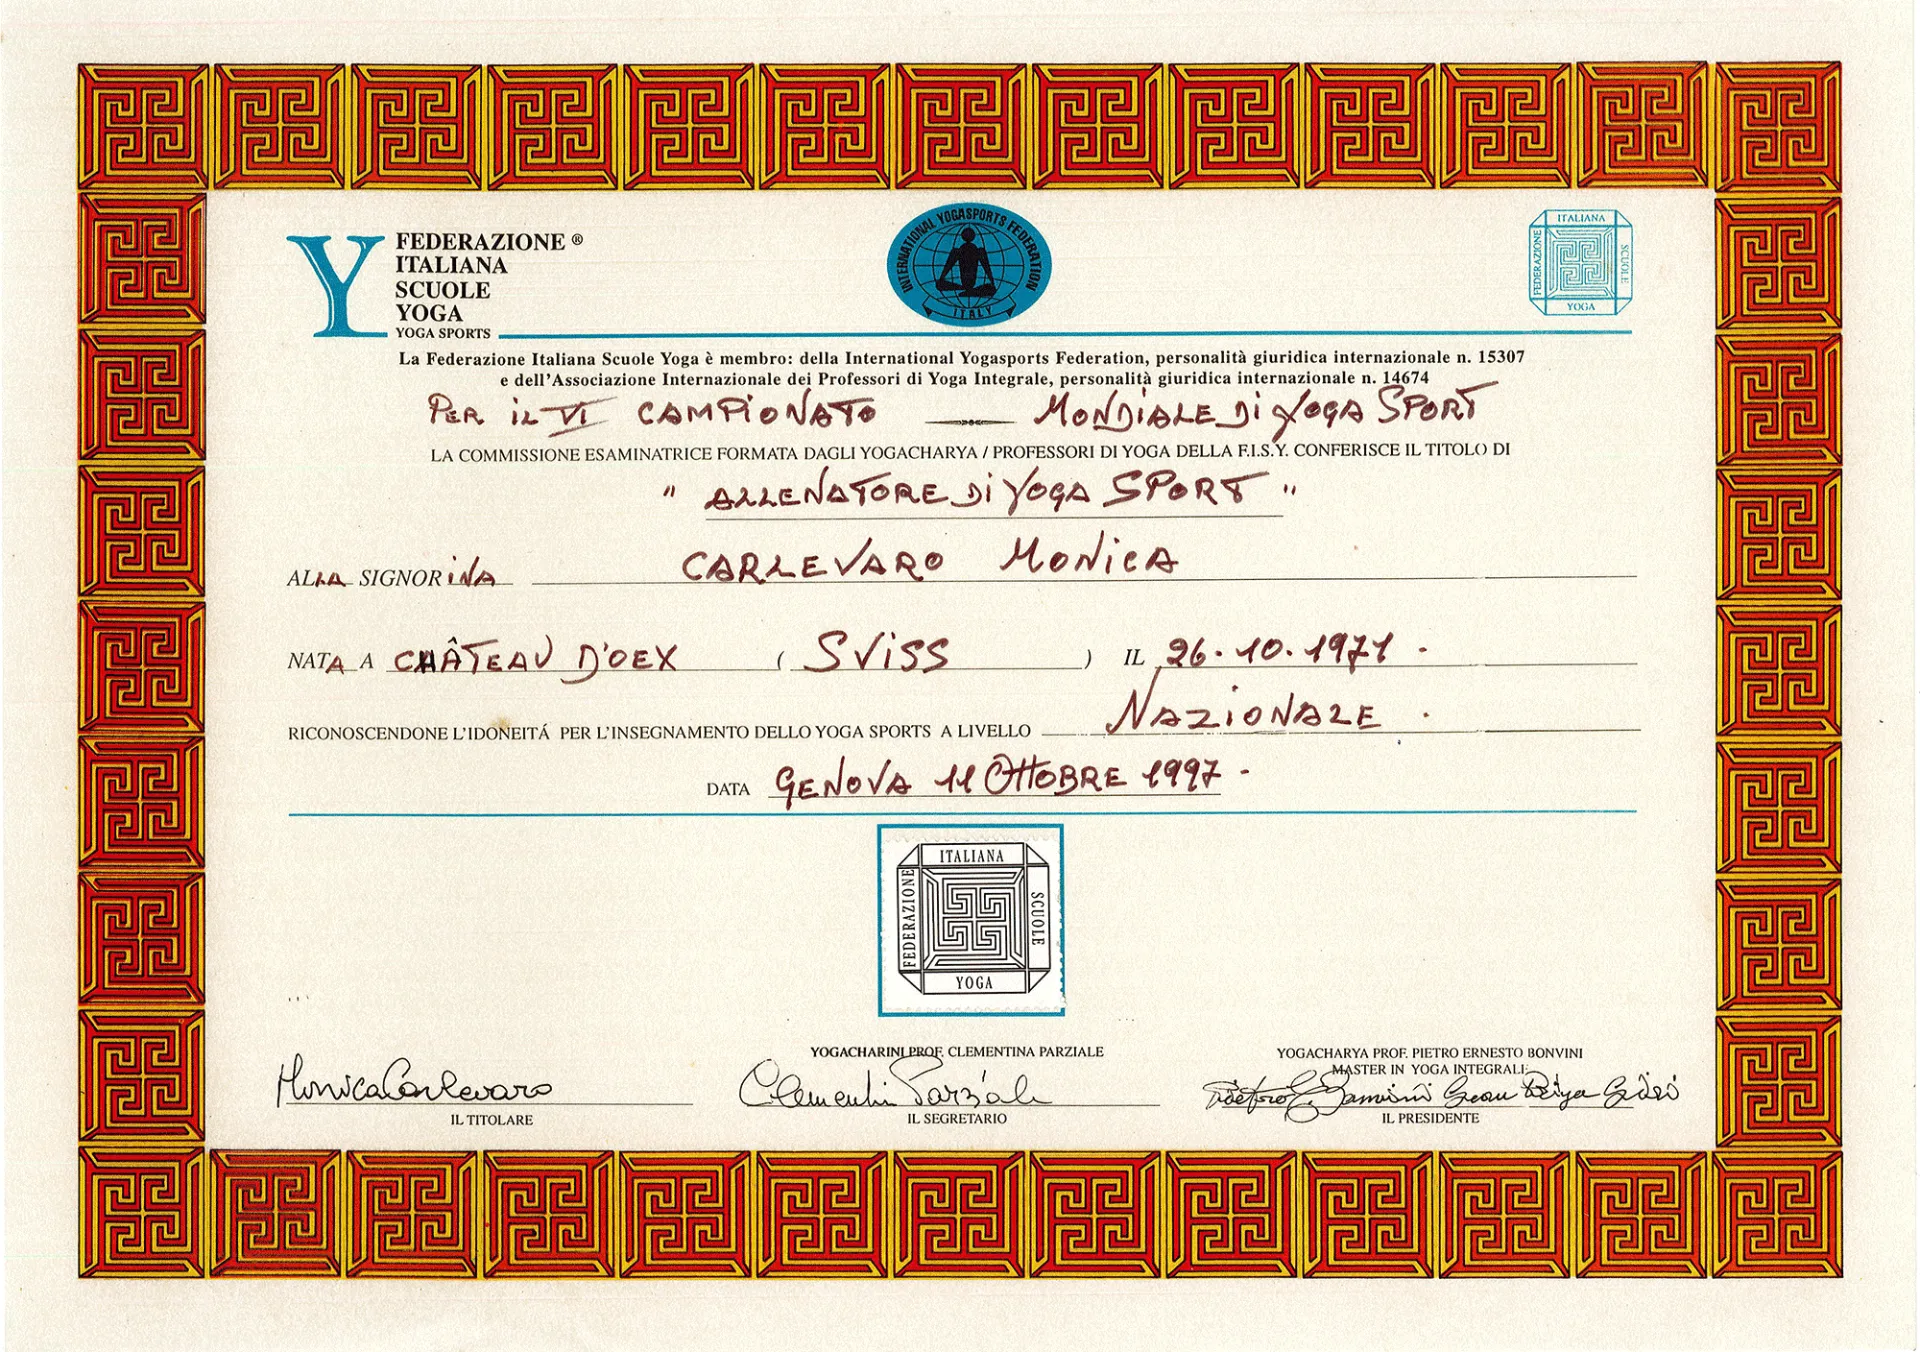 FEDERAZIONE ®
ITALIANA
SCUOLE
YOGA
YOGA SPORTS
INTERNATIONAL YOGASPORTS FEDERATION
ITALY
ITALIANA
FEDERAZIONE
SCUOLE
YOGA
La Federazione Italiana Scuole Yoga è membro: della International Yogasports Federation, personalità giuridica internazionale n. 15307
e dell'Associazione Internazionale dei Professori di Yoga Integrale, personalità giuridica internazionale n. 14674
PER IL VI CAMPIONATO MONDIALE DI YOGA SPORT
LA COMMISSIONE ESAMINATRICE FORMATA DAGLI YOGACHARYA / PROFESSORI DI YOGA DELLA F.I.S.Y. CONFERISCE IL TITOLO DI
" ALLENATORE DI YOGA SPORT "
ALLA SIGNORINA CARLEVARO MONICA
NATA A CHÂTEAU D'OEX ( SVISS ) IL 26.10.1971.
RICONOSCENDONE L'IDONEITÁ PER L'INSEGNAMENTO DELLO YOGA SPORTS A LIVELLO NAZIONALE.
DATA GENOVA 11 OTTOBRE 1997-
ITALIANA
FEDERAZIONE
SCUOLE
YOGA
YOGACHARINI PROF. CLEMENTINA PARZIALE
YOGACHARYA PROF. PIETRO ERNESTO BONVINI
MASTER IN YOGA INTEGRALE
Monica Carlevaro
Clementin Parziale
IL TITOLARE
IL SEGRETARIO
IL PRESIDENTE